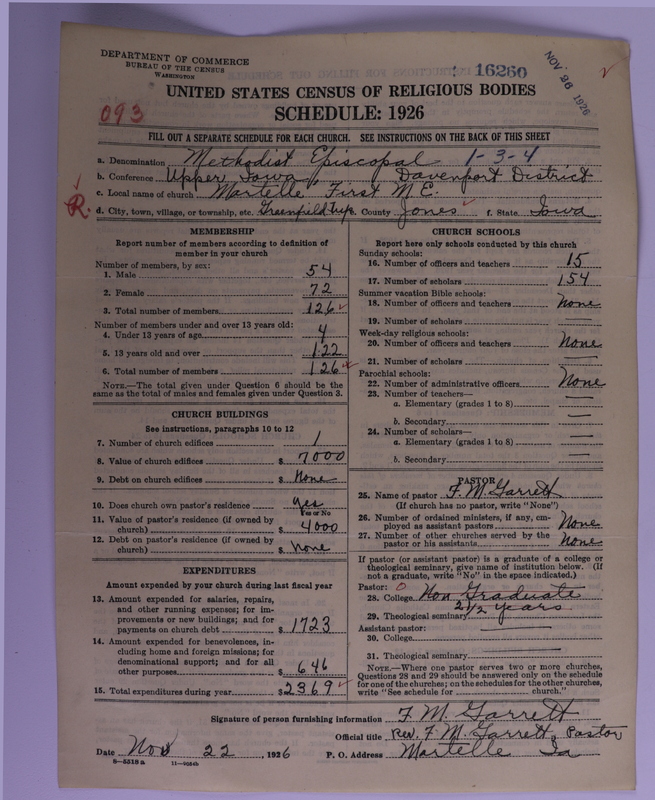 DEPARTMENT OF COMMERCE
BUREAU OF THE CENSUS
WASHINGTON
16260
NOV 26 1926
UNITED STATES CENSUS OF RELIGIOUS BODIES
093
SCHEDULE: 1926
FILL OUT A SEPARATE SCHEDULE FOR EACH CHURCH. SEE INSTRUCTIONS ON THE BACK OF THIS SHEET
a. Denomination Methodist Episcopal 1-3-4
b. Conference Upper Iowa Davenport District
c. Local name of church Martelle, First M.E.
R.
d. City, town, village, or township, etc. Greenfield Twp e. County Jones f. State Iowa
MEMBERSHIP
Report number of members according to definition of
member in your church
Number of members, by sex:
1. Male 54
2. Female 72
3. Total number of members 126
Number of members under and over 13 years old:
4. Under 13 years of age 4
5. 13 years old and over 122
6. Total number of members 126
NOTE.—The total given under Question 6 should be the
same as the total of males and females given under Question 3.
CHURCH BUILDINGS
See instructions, paragraphs 10 to 12
7. Number of church edifices 1
8. Value of church edifices $ 7000
9. Debt on church edifices $ None
10. Does church own pastor's residence yes
Yes or No
11. Value of pastor's residence (if owned by
church) $ 4000
12. Debt on pastor's residence (if owned by
church) $ None
EXPENDITURES
Amount expended by your church during last fiscal year
13. Amount expended for salaries, repairs,
and other running expenses; for im-
provements or new buildings; and for
payments on church debt $ 1723
14. Amount expended for benevolences, in-
cluding home and foreign missions; for
denominational support; and for all
other purposes $ 646
15. Total expenditures during year $ 2369
CHURCH SCHOOLS
Report here only schools conducted by this church
Sunday schools:
16. Number of officers and teachers 15
17. Number of scholars 154
Summer vacation Bible schools:
18. Number of officers and teachers None
19. Number of scholars
Week-day religious schools:
20. Number of officers and teachers None
21. Number of scholars —
Parochial schools:
22. Number of administrative officers None
23. Number of teachers—
a. Elementary (grades 1 to 8) —
b. Secondary —
24. Number of scholars—
a. Elementary (grades 1 to 8) —
b. Secondary —
PASTOR
25. Name of pastor F. M. Garrett
(If church has no pastor, write "None")
26. Number of ordained ministers, if any, em-
ployed as assistant pastors None
27. Number of other churches served by the
pastor or his assistants None
If pastor (or assistant pastor) is a graduate of a college or
theological seminary, give name of institution below. (If
not a graduate, write "No" in the space indicated.)
Pastor: 0
28. College Non Graduate
2 1/2 years
29. Theological seminary
Assistant pastor:
30. College
31. Theological seminary
NOTE.—Where one pastor serves two or more churches,
Questions 28 and 29 should be answered only on the schedule
for one of the churches; on the schedules for the other churches,
write "See schedule for church."
Signature of person furnishing information F M Garrett
Official title Rev. F. M. Garrett, Pastor
Date Nov 22, 1926 P. O. Address Martelle Ia
8—5318a 11—9054b